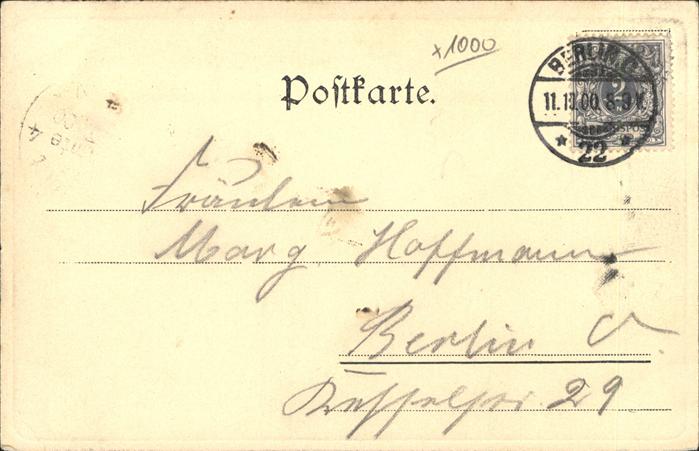 x1000
BERLIN C.
11.10.00. 8-9 V.
* 22 *
2
REICHSPOST
Postkarte.
Fräulein
Marg. Hoffmann
Berlin O.
29